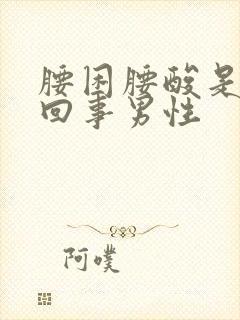 腰困腰酸是
回事男性
阿噗